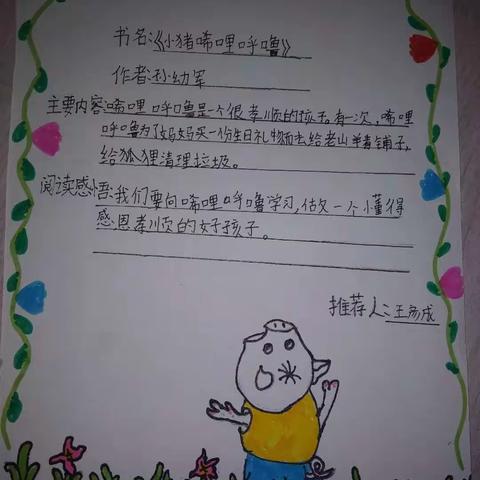 书名:《小猪唏哩呼噜》
作者:孙幼军
主要内容:唏哩呼噜是个很孝顺的孩子。有一次,唏哩
呼噜为了妈妈买一份生日礼物而去给老山羊看铺子,
给狐狸清理垃圾。
阅读感悟:我们要向唏哩呼噜学习,做一个懂得
感恩孝顺的好孩子。
推荐人:王彦成